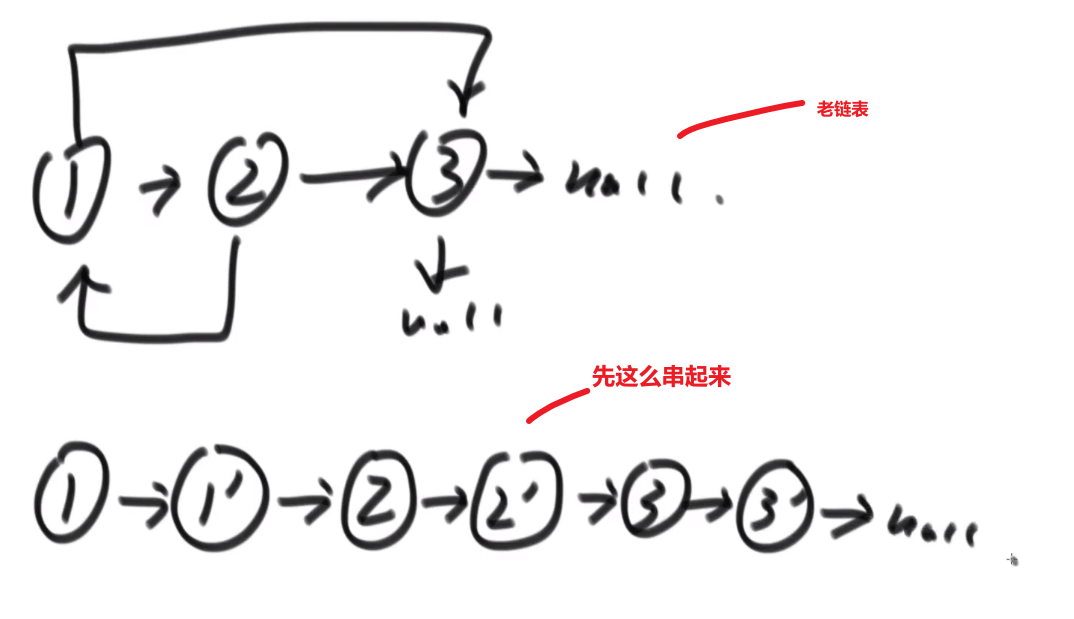 老链表
1 → 2 → 3 → null.
null
先这么串起来
1 → 1' → 2 → 2' → 3 → 3' → null